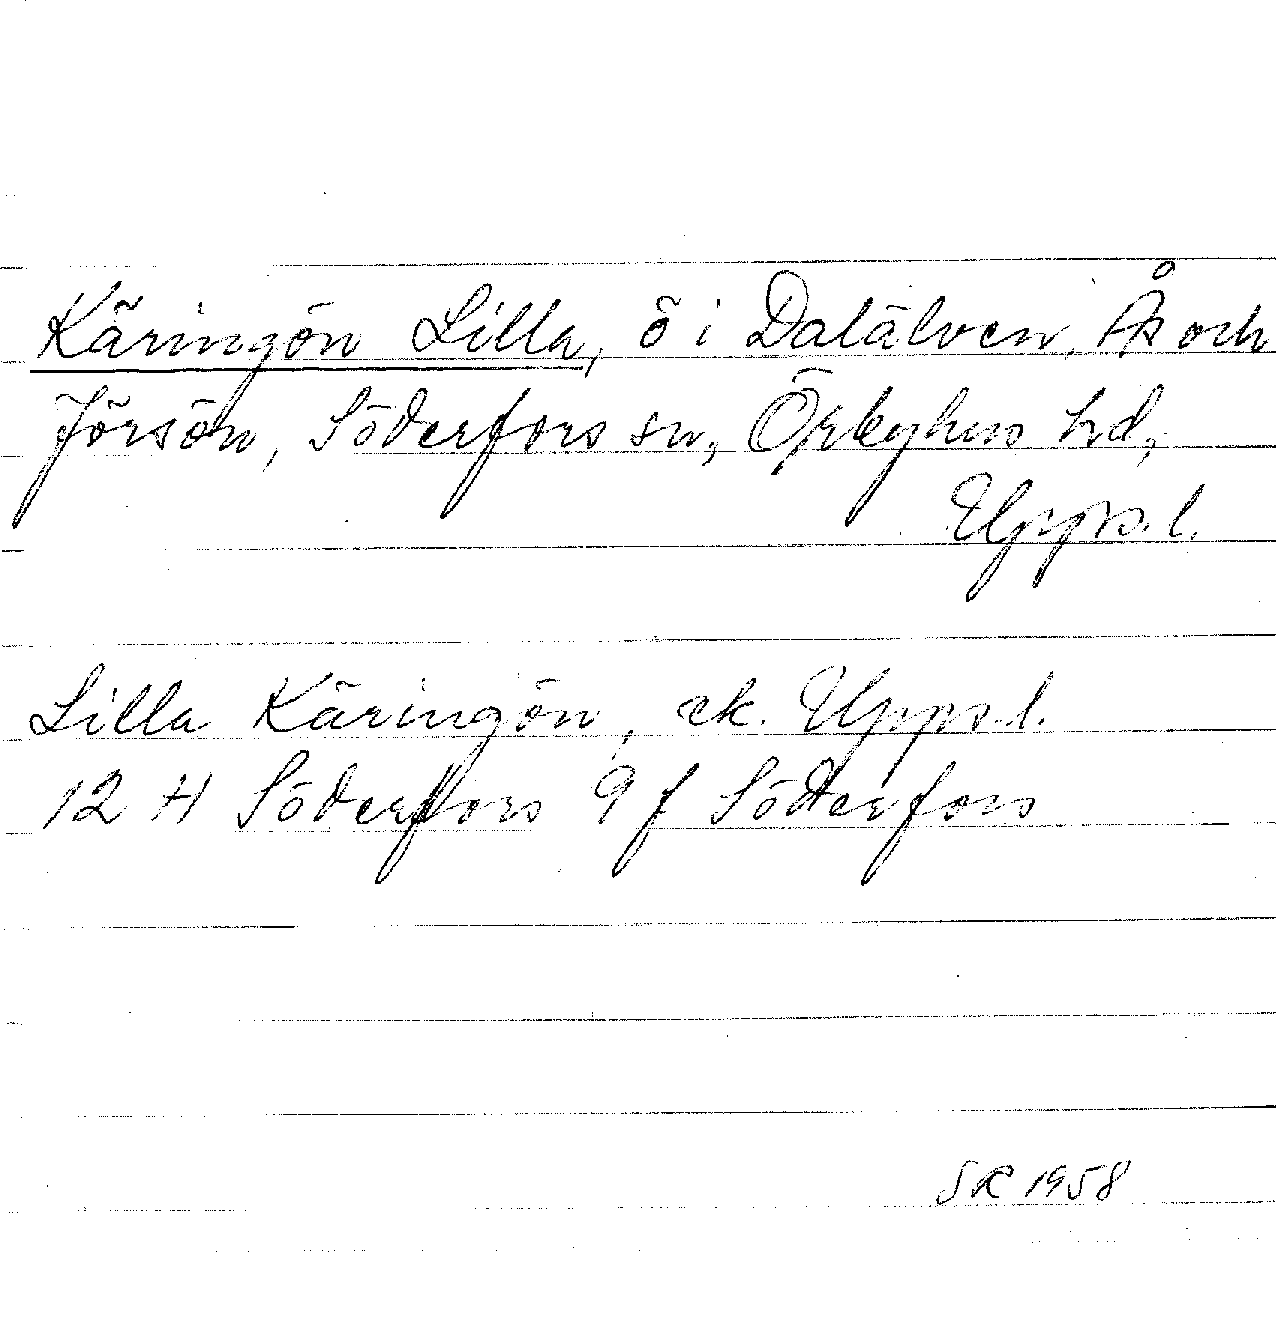 Käringön Lilla, ö i Dalälven, Ås och
Jörsön, Söderfors sn, Örbyhus hd,
Upps. l.
Lilla Käringön, ek. Upps. l.
12 H Söderfors 9 f Söderfors
SR 1958